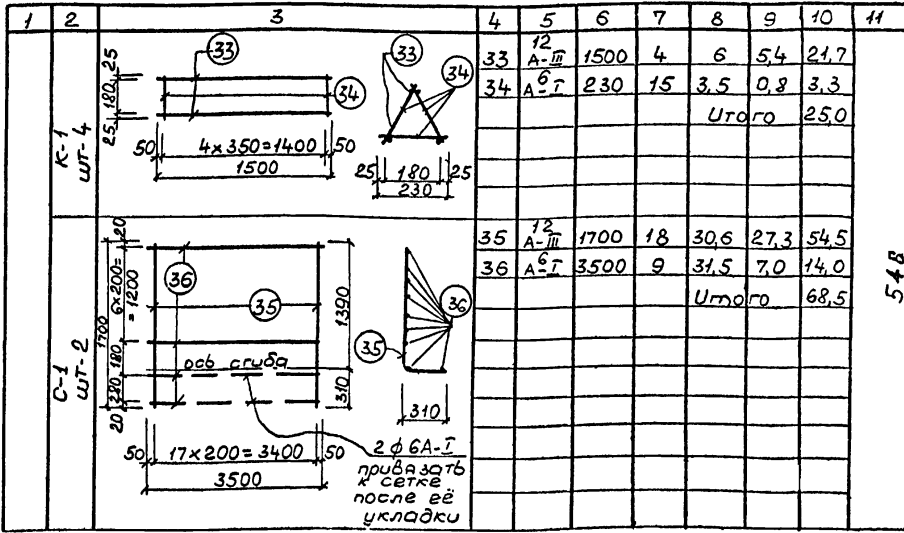 1 2 3 4 5 6 7 8 9 10 11
К-1
шт-4
33
34
25
180
25
50 4х350=1400 50
1500
33
34
25 180 25
230
33 12 А-III 1500 4 6 5,4 21,7
34 6 А-I 230 15 3,5 0,8 3,3
Итого 25,0
С-1
шт-2
20
6х200=
=1200
1700
180
280
20
36
35
ось сгиба
1390
310
50 17х200=3400 50
3500
36
35
310
2ф6А-I
привязать
к сетке
после её
укладки
35 12 А-III 1700 18 30,6 27,3 54,5
36 6 А-I 3500 9 31,5 7,0 14,0
Итого 68,5
548